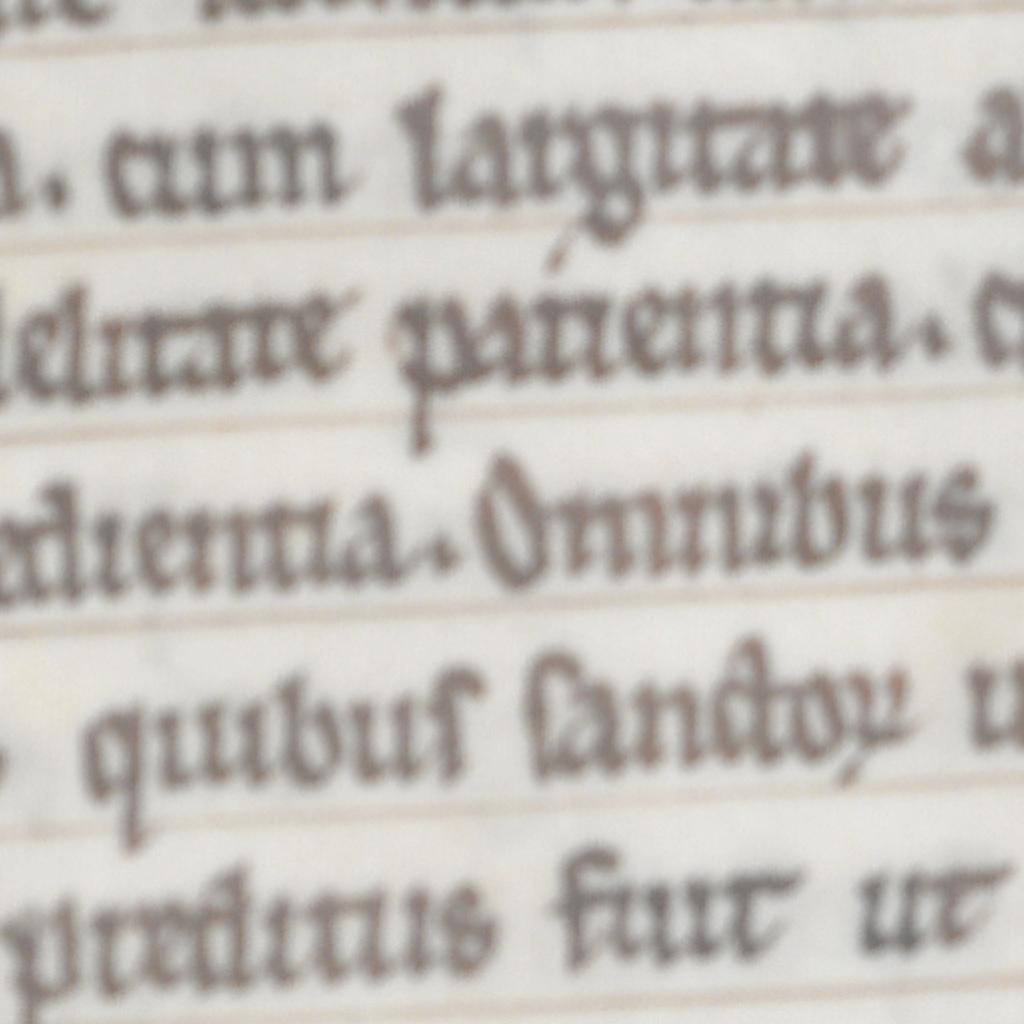 . cum largitate
elitate patientia.
edientia. Omnibus
quibus sanctoꝝ
preditus fuit ut